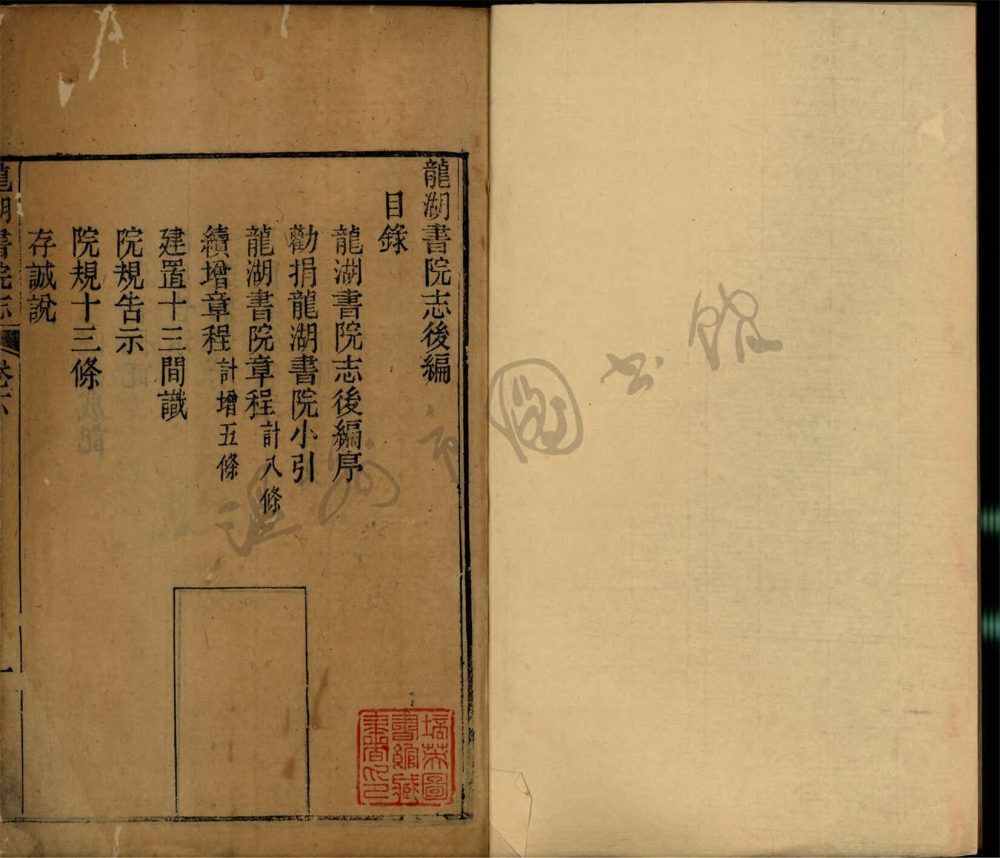 龍湖書院志後編
目錄
龍湖書院志後編序
勸捐龍湖書院小引
龍湖書院章程計八條
續增章程計增五條
建置十三間識
院規告示
院規十三條
存誠說
龍湖書院志
一
溫州市圖书館